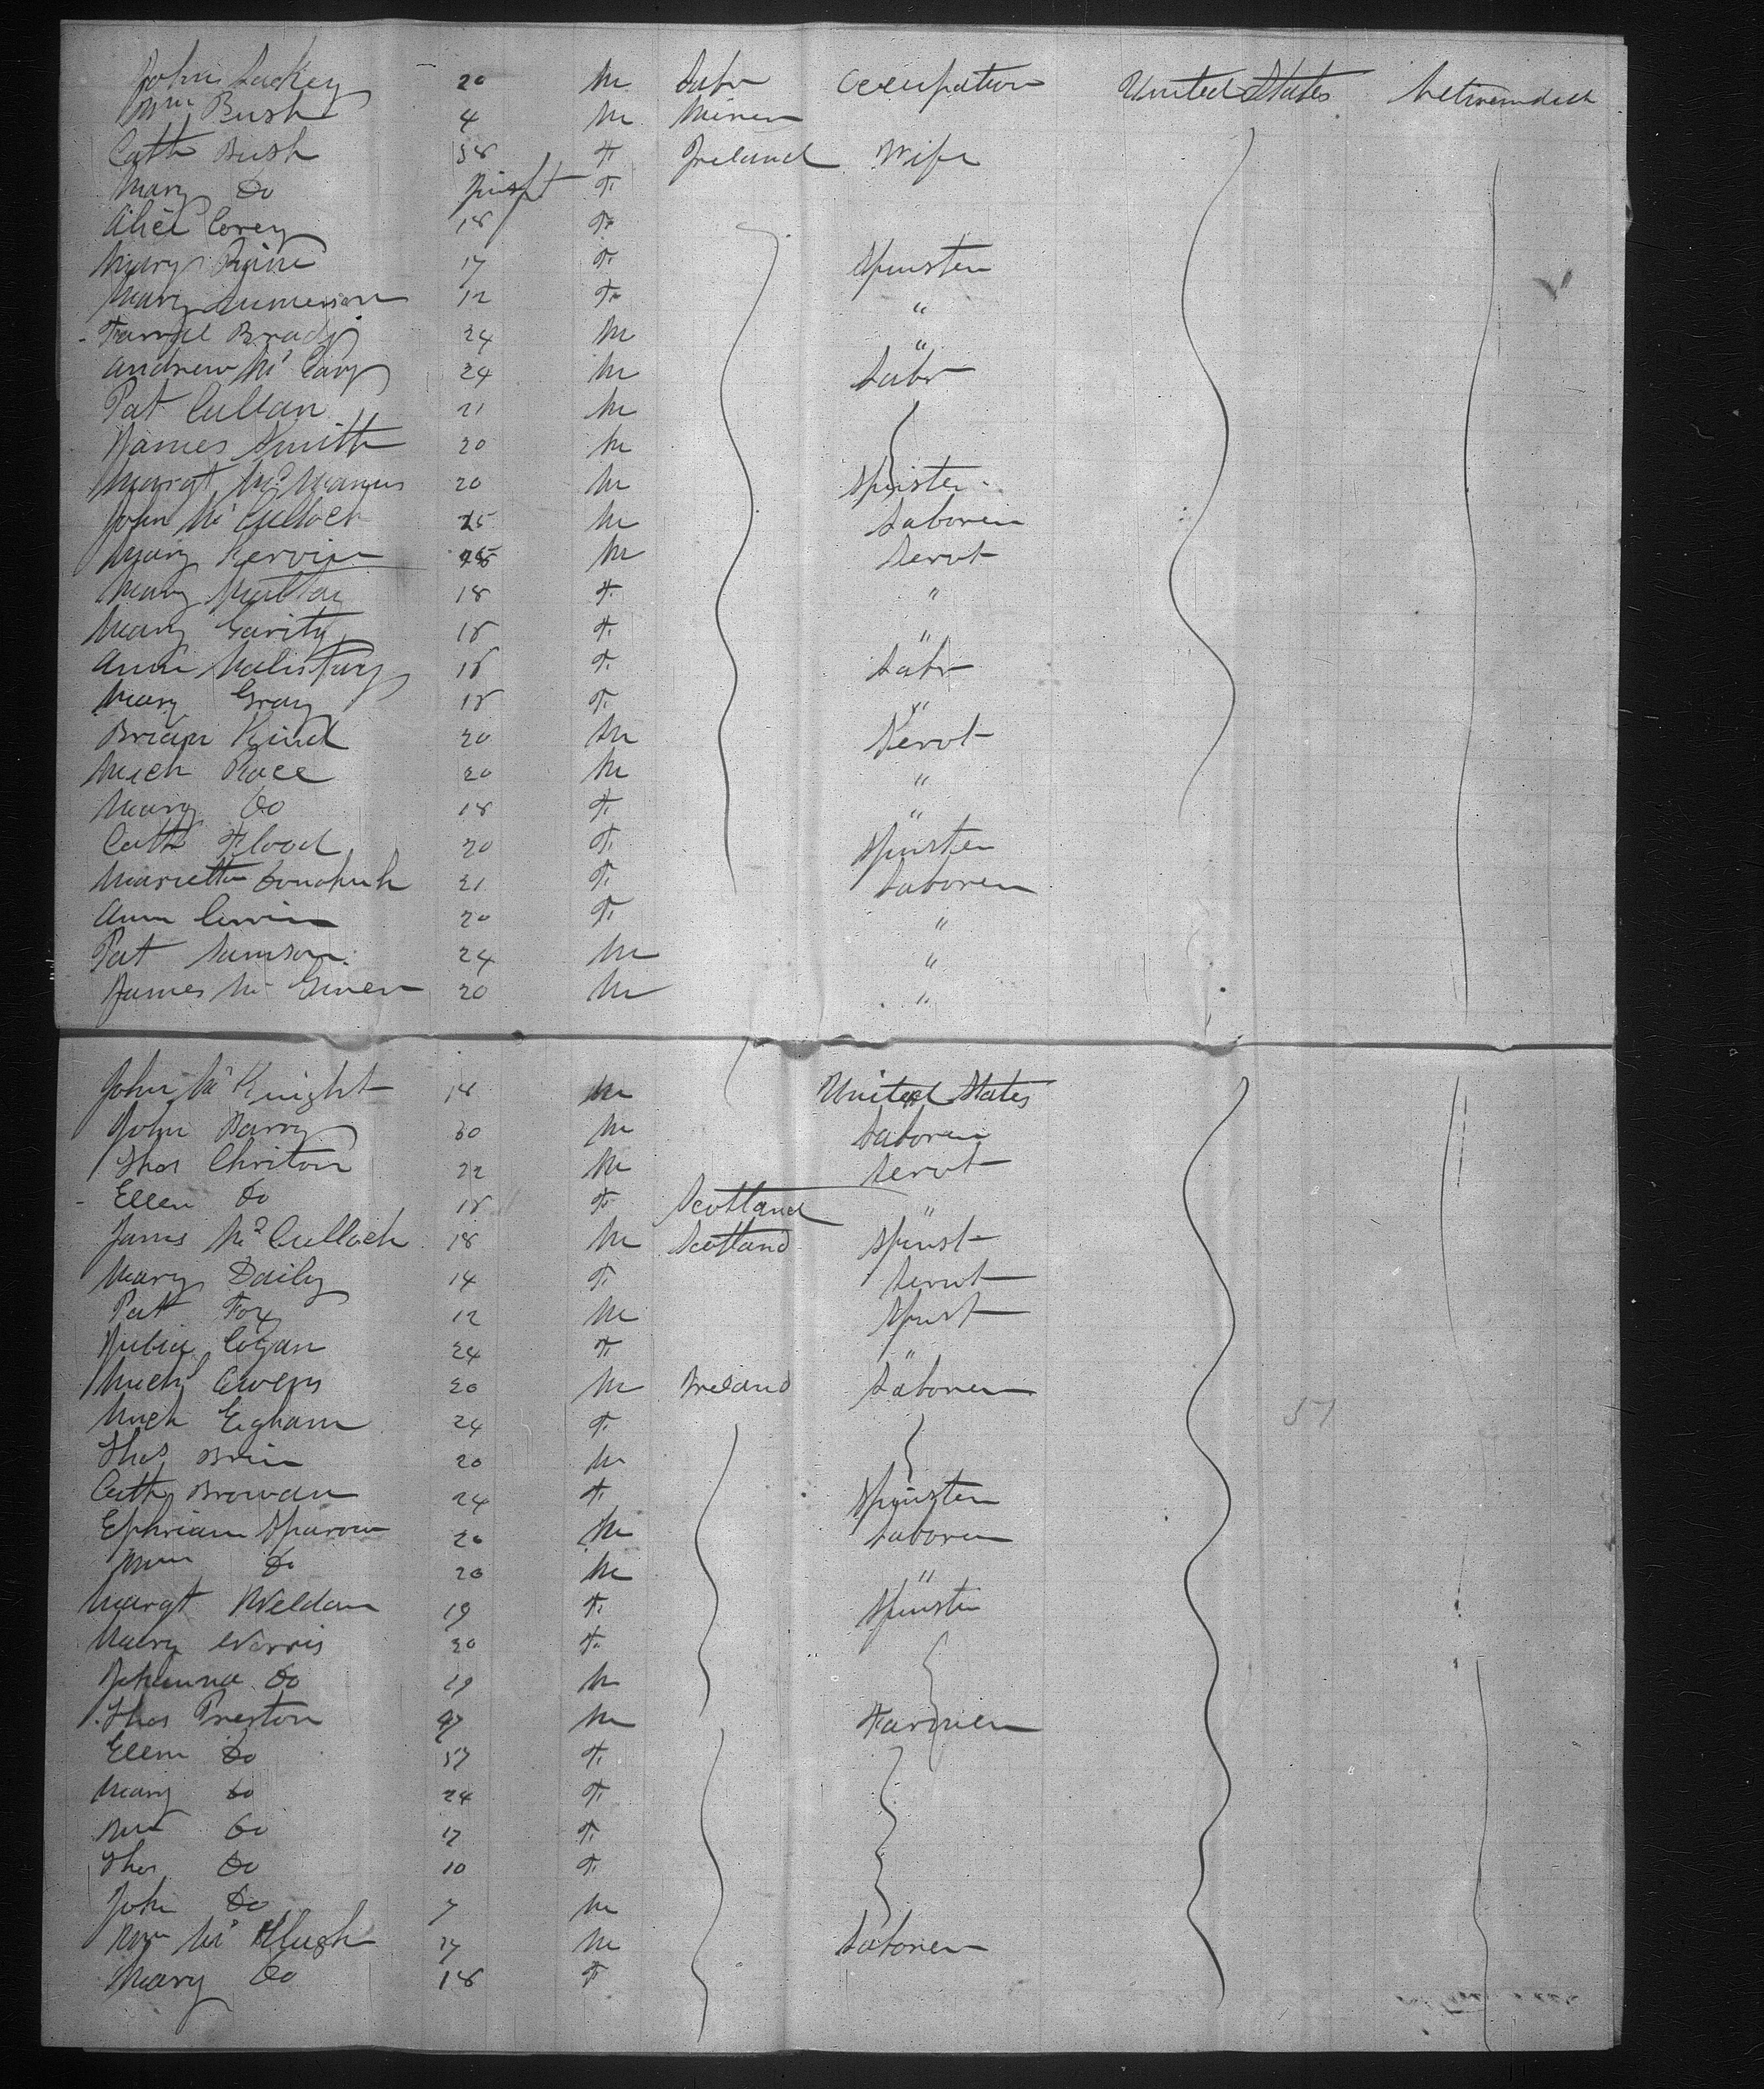 John Lackey 20 M Labr Occupation United States Between deck
Wm Bush 4 M Miner
Cath Bush 38 F Ireland Wife
Mary Do Infant F
Alice Corey 18 F
Mary 17 F Spinster
Mary 12 F "
Farrel Brady 24 M "
Andrew Mc Cavy 24 M Labr
Pat Cullan 21 M
James Smith 20 M
Margt Mc Manus 20 M Spinster
John Mc Culloch 25 M Laborer
Mary Kervin M Servt
Mary 18 F "
Mary Garity 18 F "
Ann 18 F Labr
Mary Gray 18 F "
Brian Kind 20 M Servt
Mich Race 20 M "
Mary Do 18 F "
Cath Flood 20 F Spinster
Marietta Donohuh 21 F Laborer
Ann 20 F "
Pat Samson 24 M "
James Mc Giner 20 M "
John Mc Knight 18 M United States
John Barry 30 M Laborer
Thos Chriton 22 M Servt
Ellen Do 18 F Scotland "
James Mc Culloch 18 M Scotland Spinst
Mary Daily 14 F Servt
Pat Fox 12 M Spinst
Julia Cogan 24 F "
Mich Owens 20 M Ireland Laborer
Mich Egham 24 F 57
Thos Brin 20 M
Cath Browan 24 F Spinster
Ephriam Sparow 26 M Laborer
Wm Do 20 M "
Margt Weldon 19 F Spinster
Mary Norris 20 F
Johanna Do 19 M
Thos Preston 47 M Farmer
Ellen Do 37 F
Mary Do 24 F
Do 17 F
Thos Do 10 F
John Do 7 M
Wm Mc Hugh 17 M Laborer
Mary Do 18 F